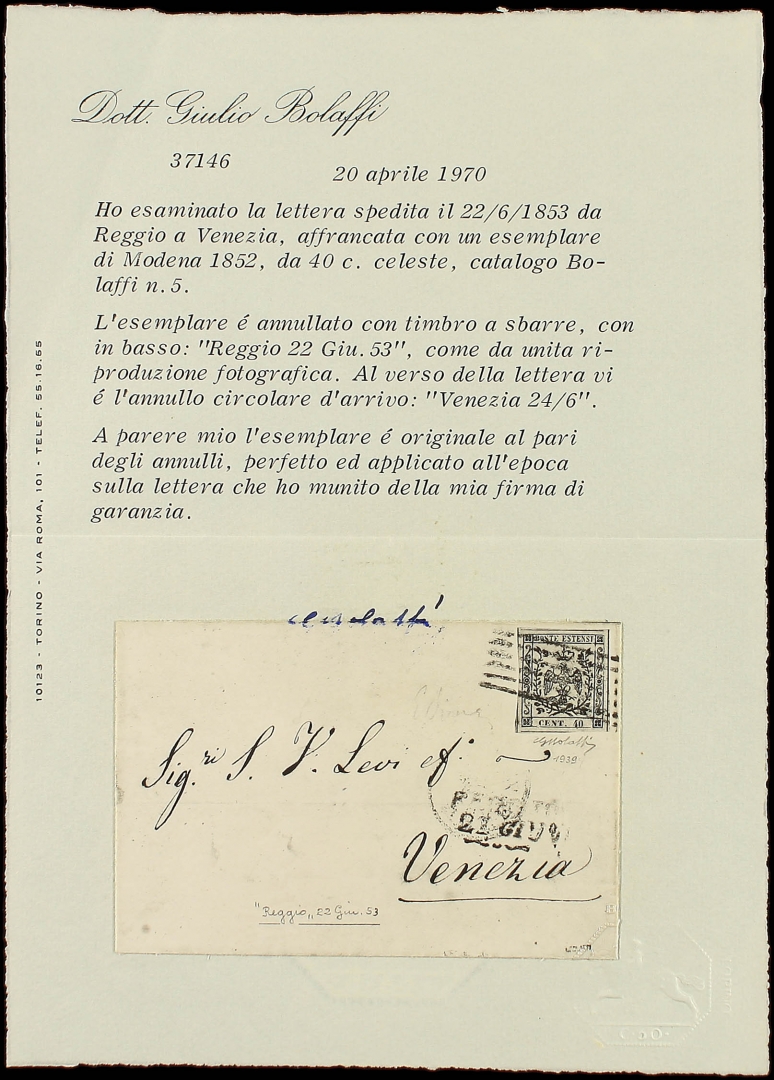 Dott. Giulio Bolaffi
37146
20 aprile 1970
Ho esaminato la lettera spedita il 22/6/1853 da
Reggio a Venezia, affrancata con un esemplare
di Modena 1852, da 40 c. celeste, catalogo Bo-
laffi n. 5.
L'esemplare é annullato con timbro a sbarre, con
in basso: "Reggio 22 Giu. 53", come da unita ri-
produzione fotografica. Al verso della lettera vi
é l'annullo circolare d'arrivo: "Venezia 24/6".
A parere mio l'esemplare é originale al pari
degli annulli, perfetto ed applicato all'epoca
sulla lettera che ho munito della mia firma di
garanzia.
10123 - TORINO - VIA ROMA, 101 - TELEF. 55.16.55
GBolaffi
POSTE ESTENSI
CENT. 40
GBolaffi
1939
Sig.ri S. V. Levi
Venezia
"Reggio" 22 Giu. 53